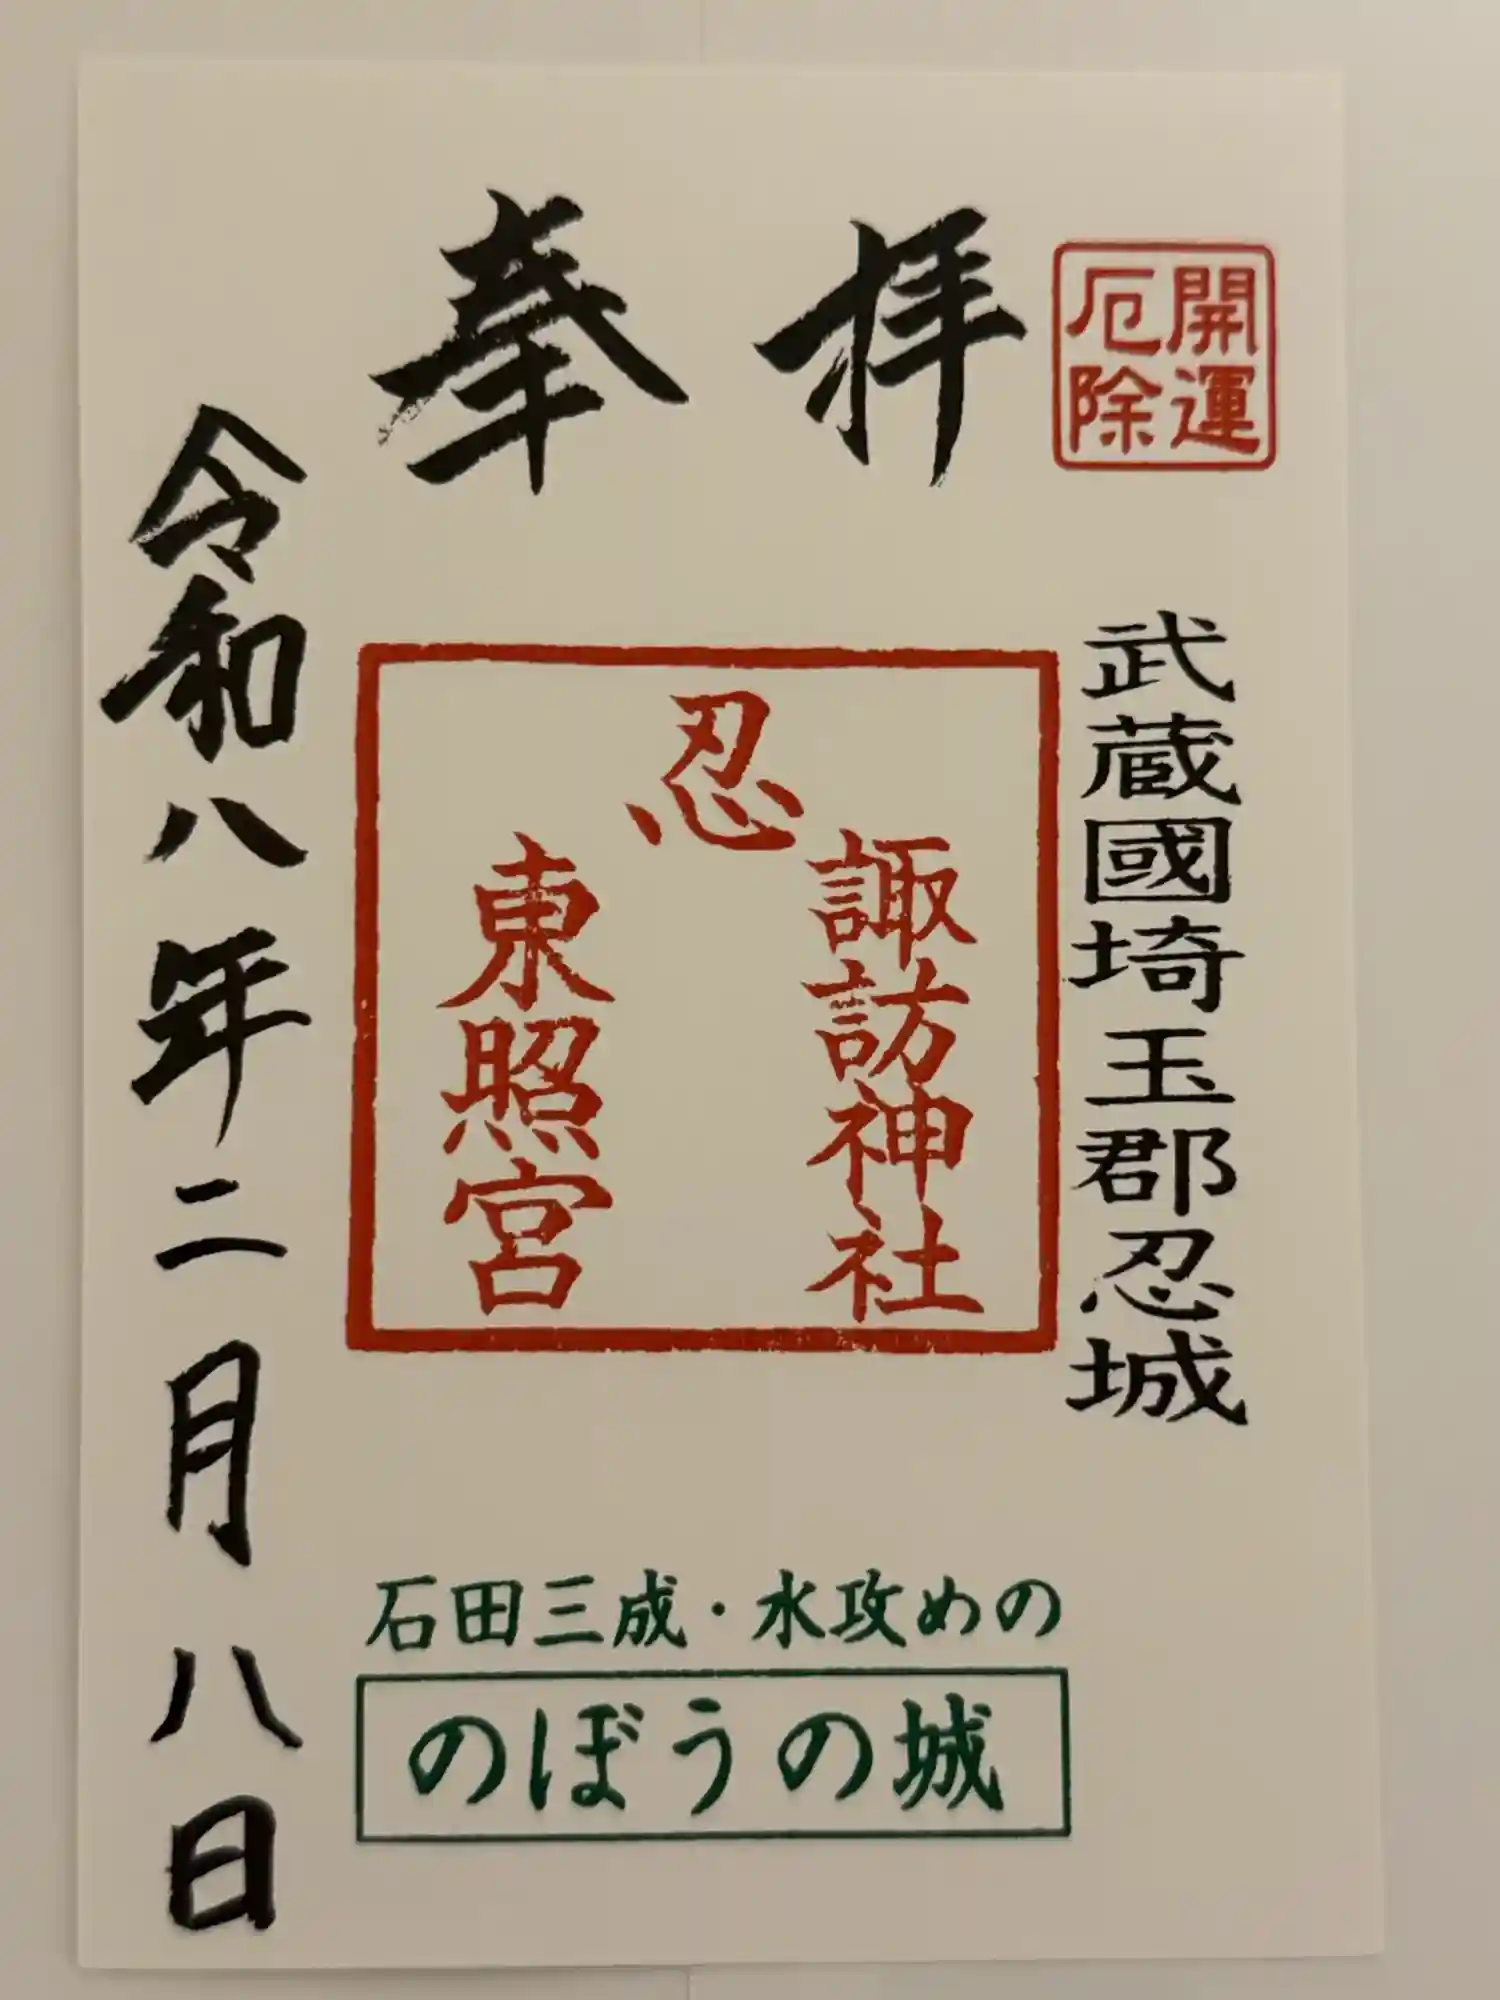 奉拝
開運
厄除
武蔵國埼玉郡忍城
忍
諏訪神社
東照宮
令和八年二月八日
石田三成・水攻めの
のぼうの城